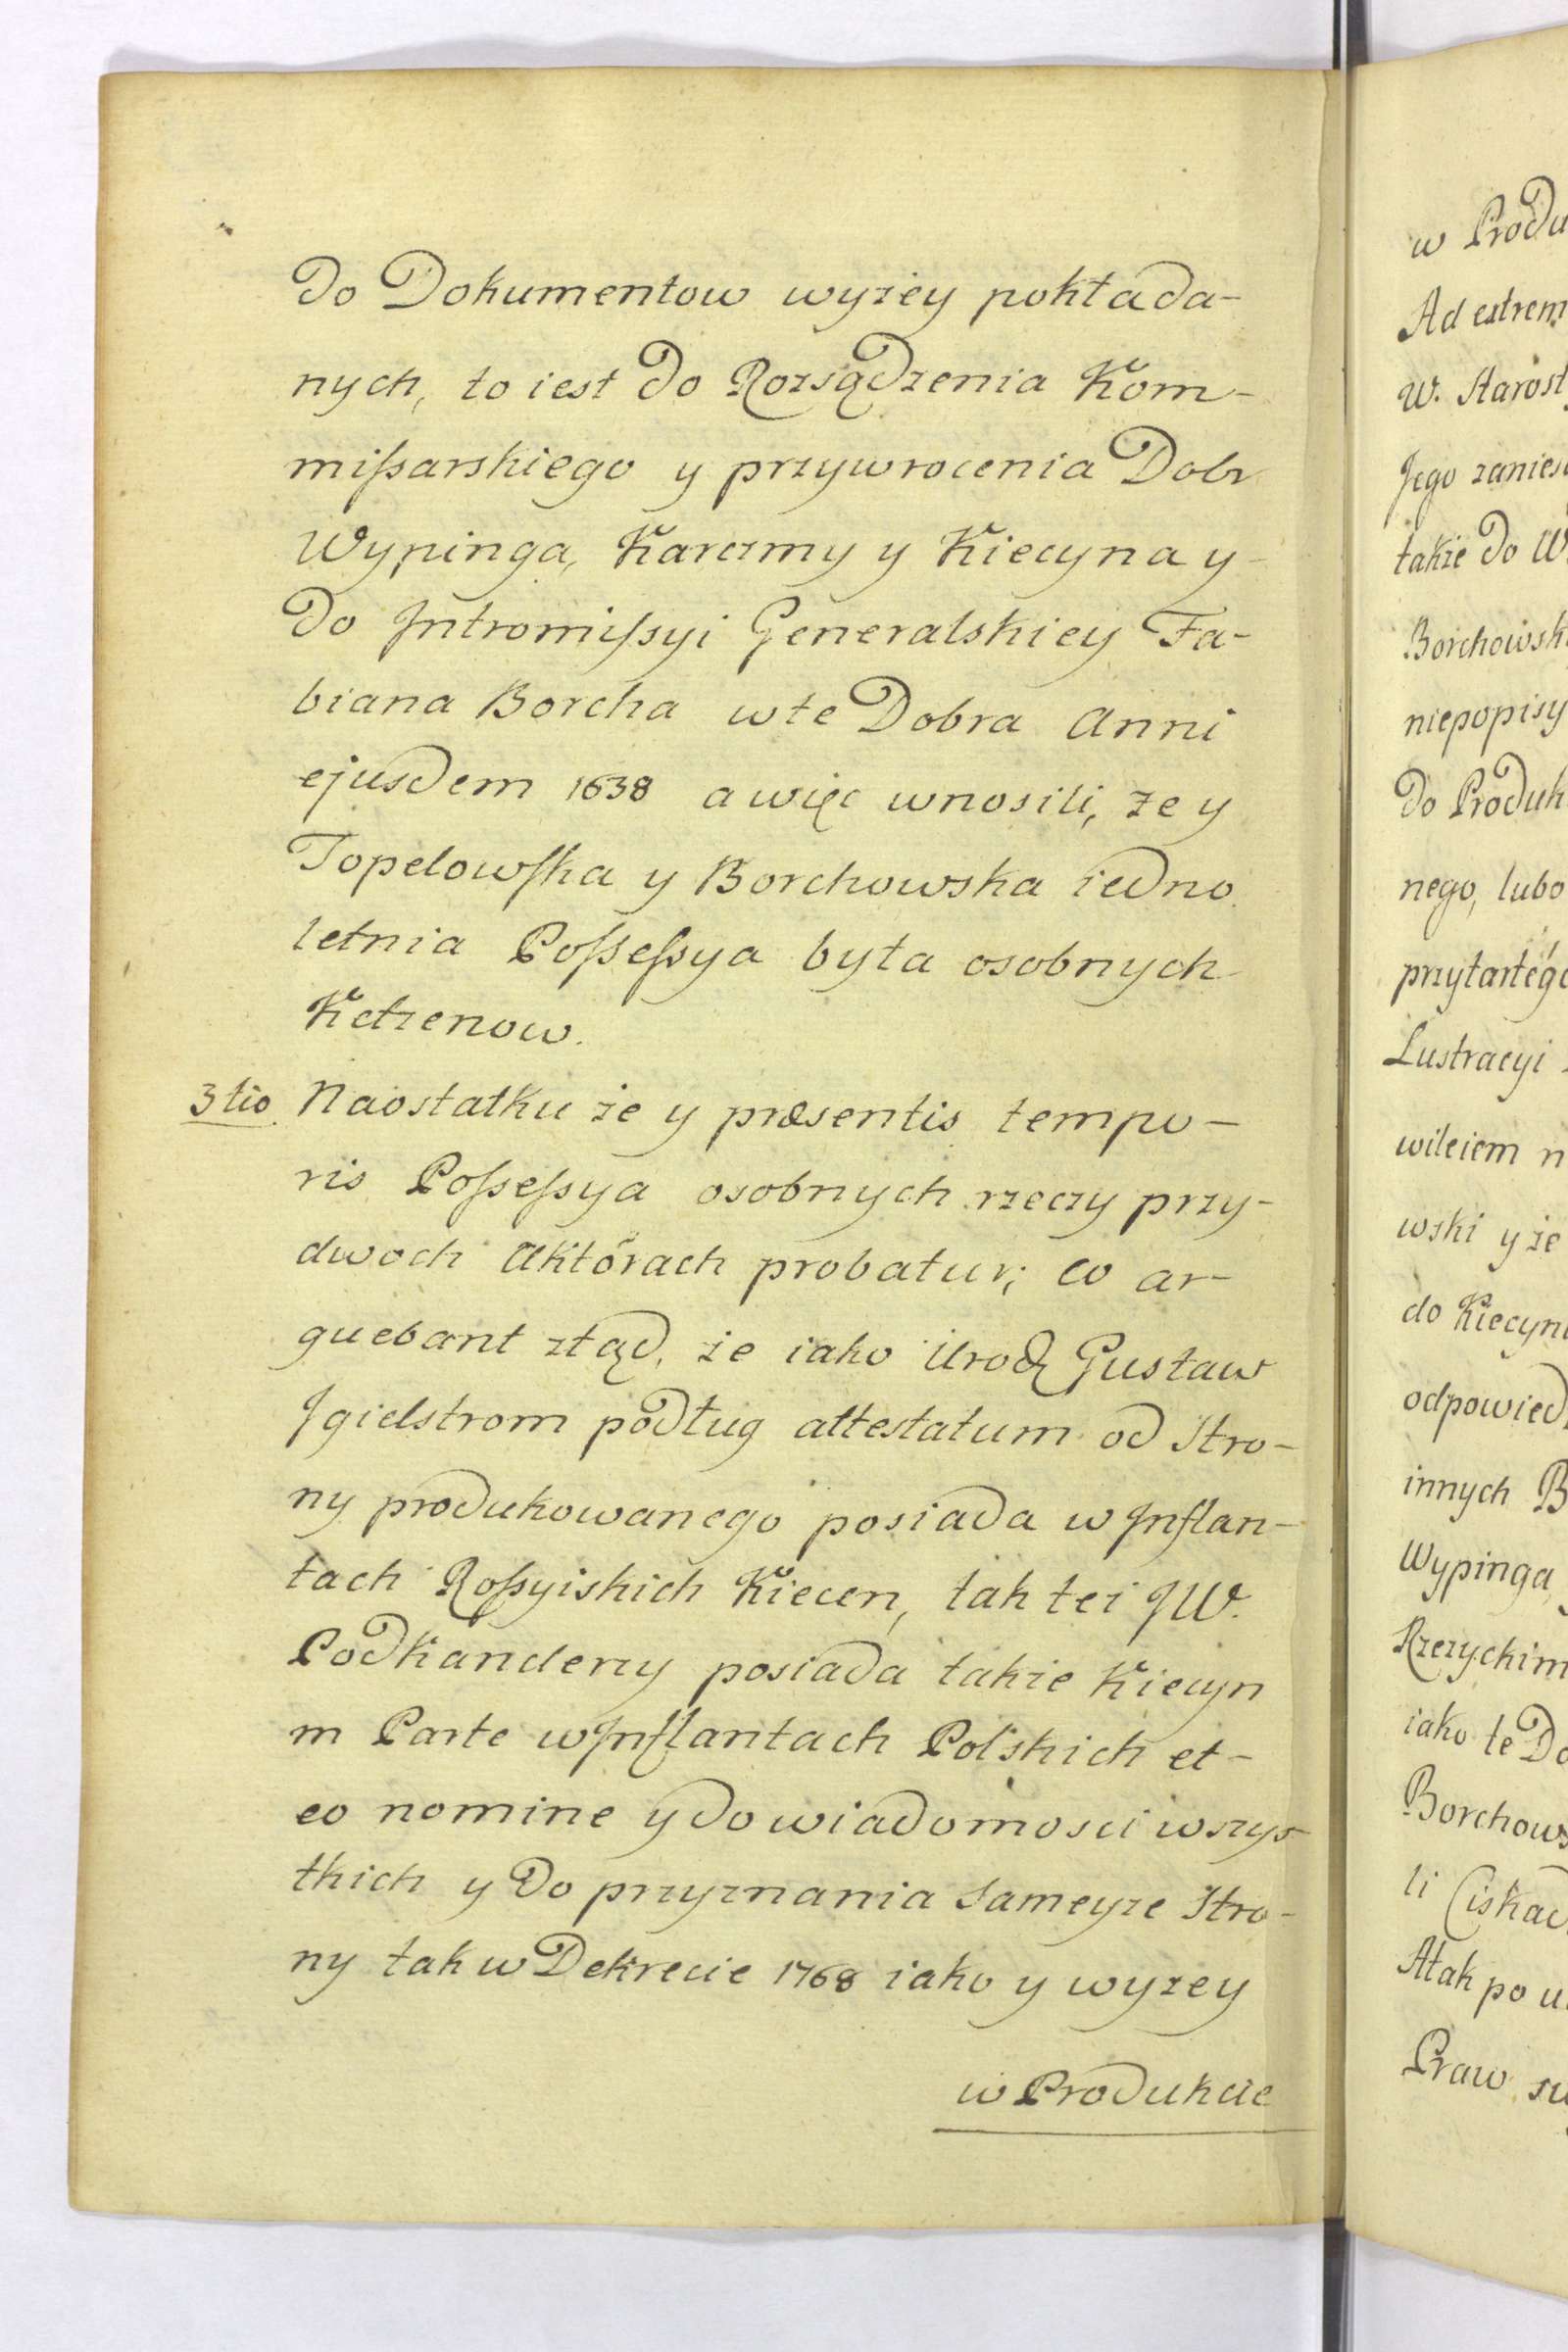 Do Dokumentow wyżey pokłada-
nych, to iest do Rozsądzenia Kom-
mißarskiego y przywrocenia Dobr
Wypinga, Karczmy y Kiecyna y
do Intromißyi Generalskiey Fa-
biana Borcha w te Dobra Anni
ejusdem 1638 a więc wnosili, że y
Topelowska y Borchowska iedno
letnia Poßeßya była osobnych
Ketzenow.
3tio Naostatku że y præsentis tempo-
ris Poßeßya osobnych rzeczy przy-
dwoch Aktórach probatur; co ar-
guebant ztąd, że iako Urodz Gustaw
Igielstrom podług attestatum od Stro-
ny produkowanego posiada w Inflan-
tach Roßyiskich Kiecen, tak też JW.
Podkanclerzy posiada także Kiecyn
in Parte w Inflantach Polskich et-
eo nomine y do wiadomosci wszys-
tkich y do przyznania sameyże Stro-
ny tak w Dekrecie 1768 iako y wyżey
w Produkcie
w Produ
Ad extrem
W. Starost
Jego zanies
także do W
Borchowsk
niepopisy
do Produk
nego, lubo
przytartego
Lustracyi
wileiem n
wski y że
do Kiecyn
odpowied
innych B
Wypinga,
Rzezyckim
iako te Do
Borchows
li Ciskad
A tak po u
Praw sw